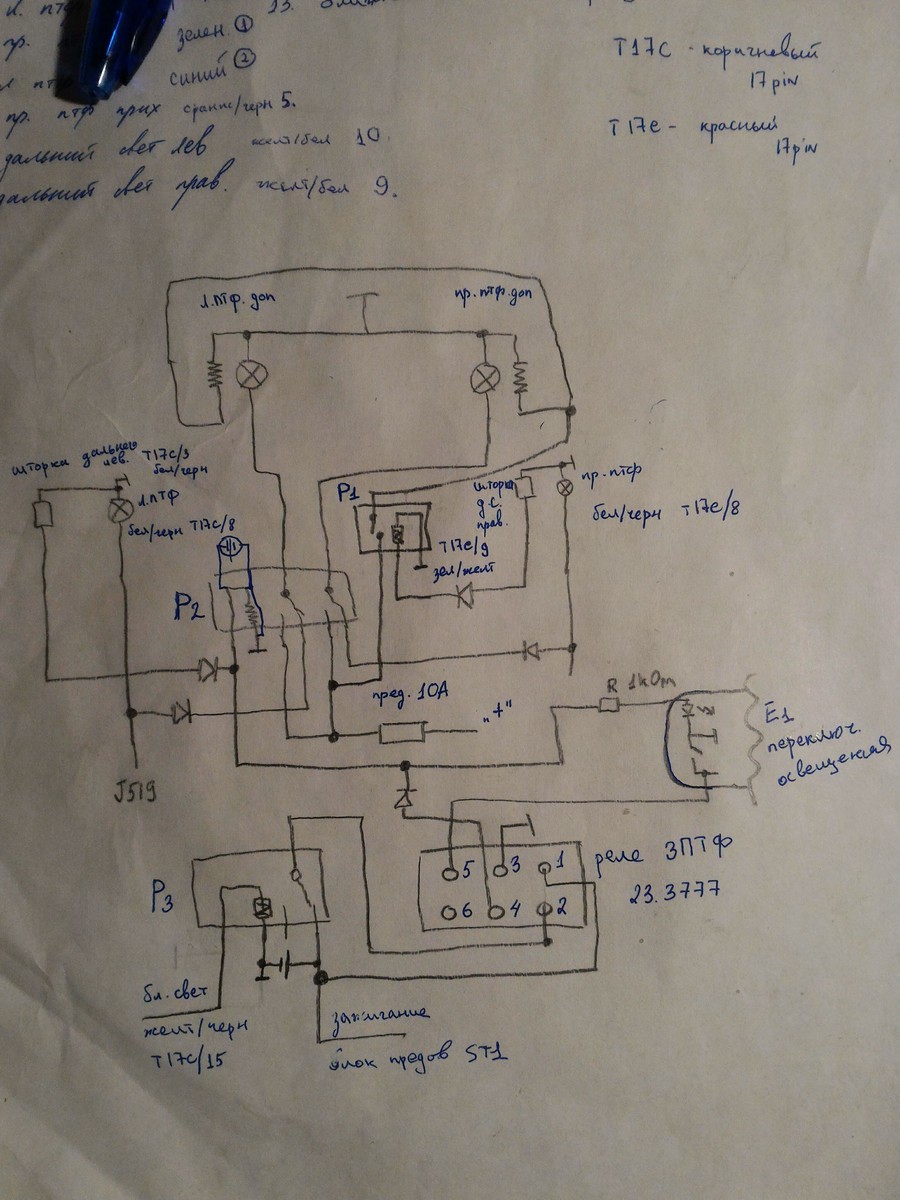 л. птф
13.
пр. зелен. ①
л птф синий ②
пр. птф прих оранж/черн 5.
дальний свет лев желт/бел 10.
дальний свет прав. желт/бел 9.
T17c - коричневый
17 pin
T17e - красный
17 pin
л.птф. доп
пр. птф. доп
шторка дальнего
лев. T17c/3
бел/черн
л.птф
бел/черн T17c/8
P1
шторка
д.с.
прав.
T17e/9
зел/желт
пр. птф
бел/черн T17e/8
P2
пред. 10A
"+"
R 1kOm
E1
переключ.
освещения
J519
P3
5 3 1
6 4 2
реле ЗПТФ
23.3777
бл. свет
желт/черн
T17c/15
зажигание
блок предов ST1